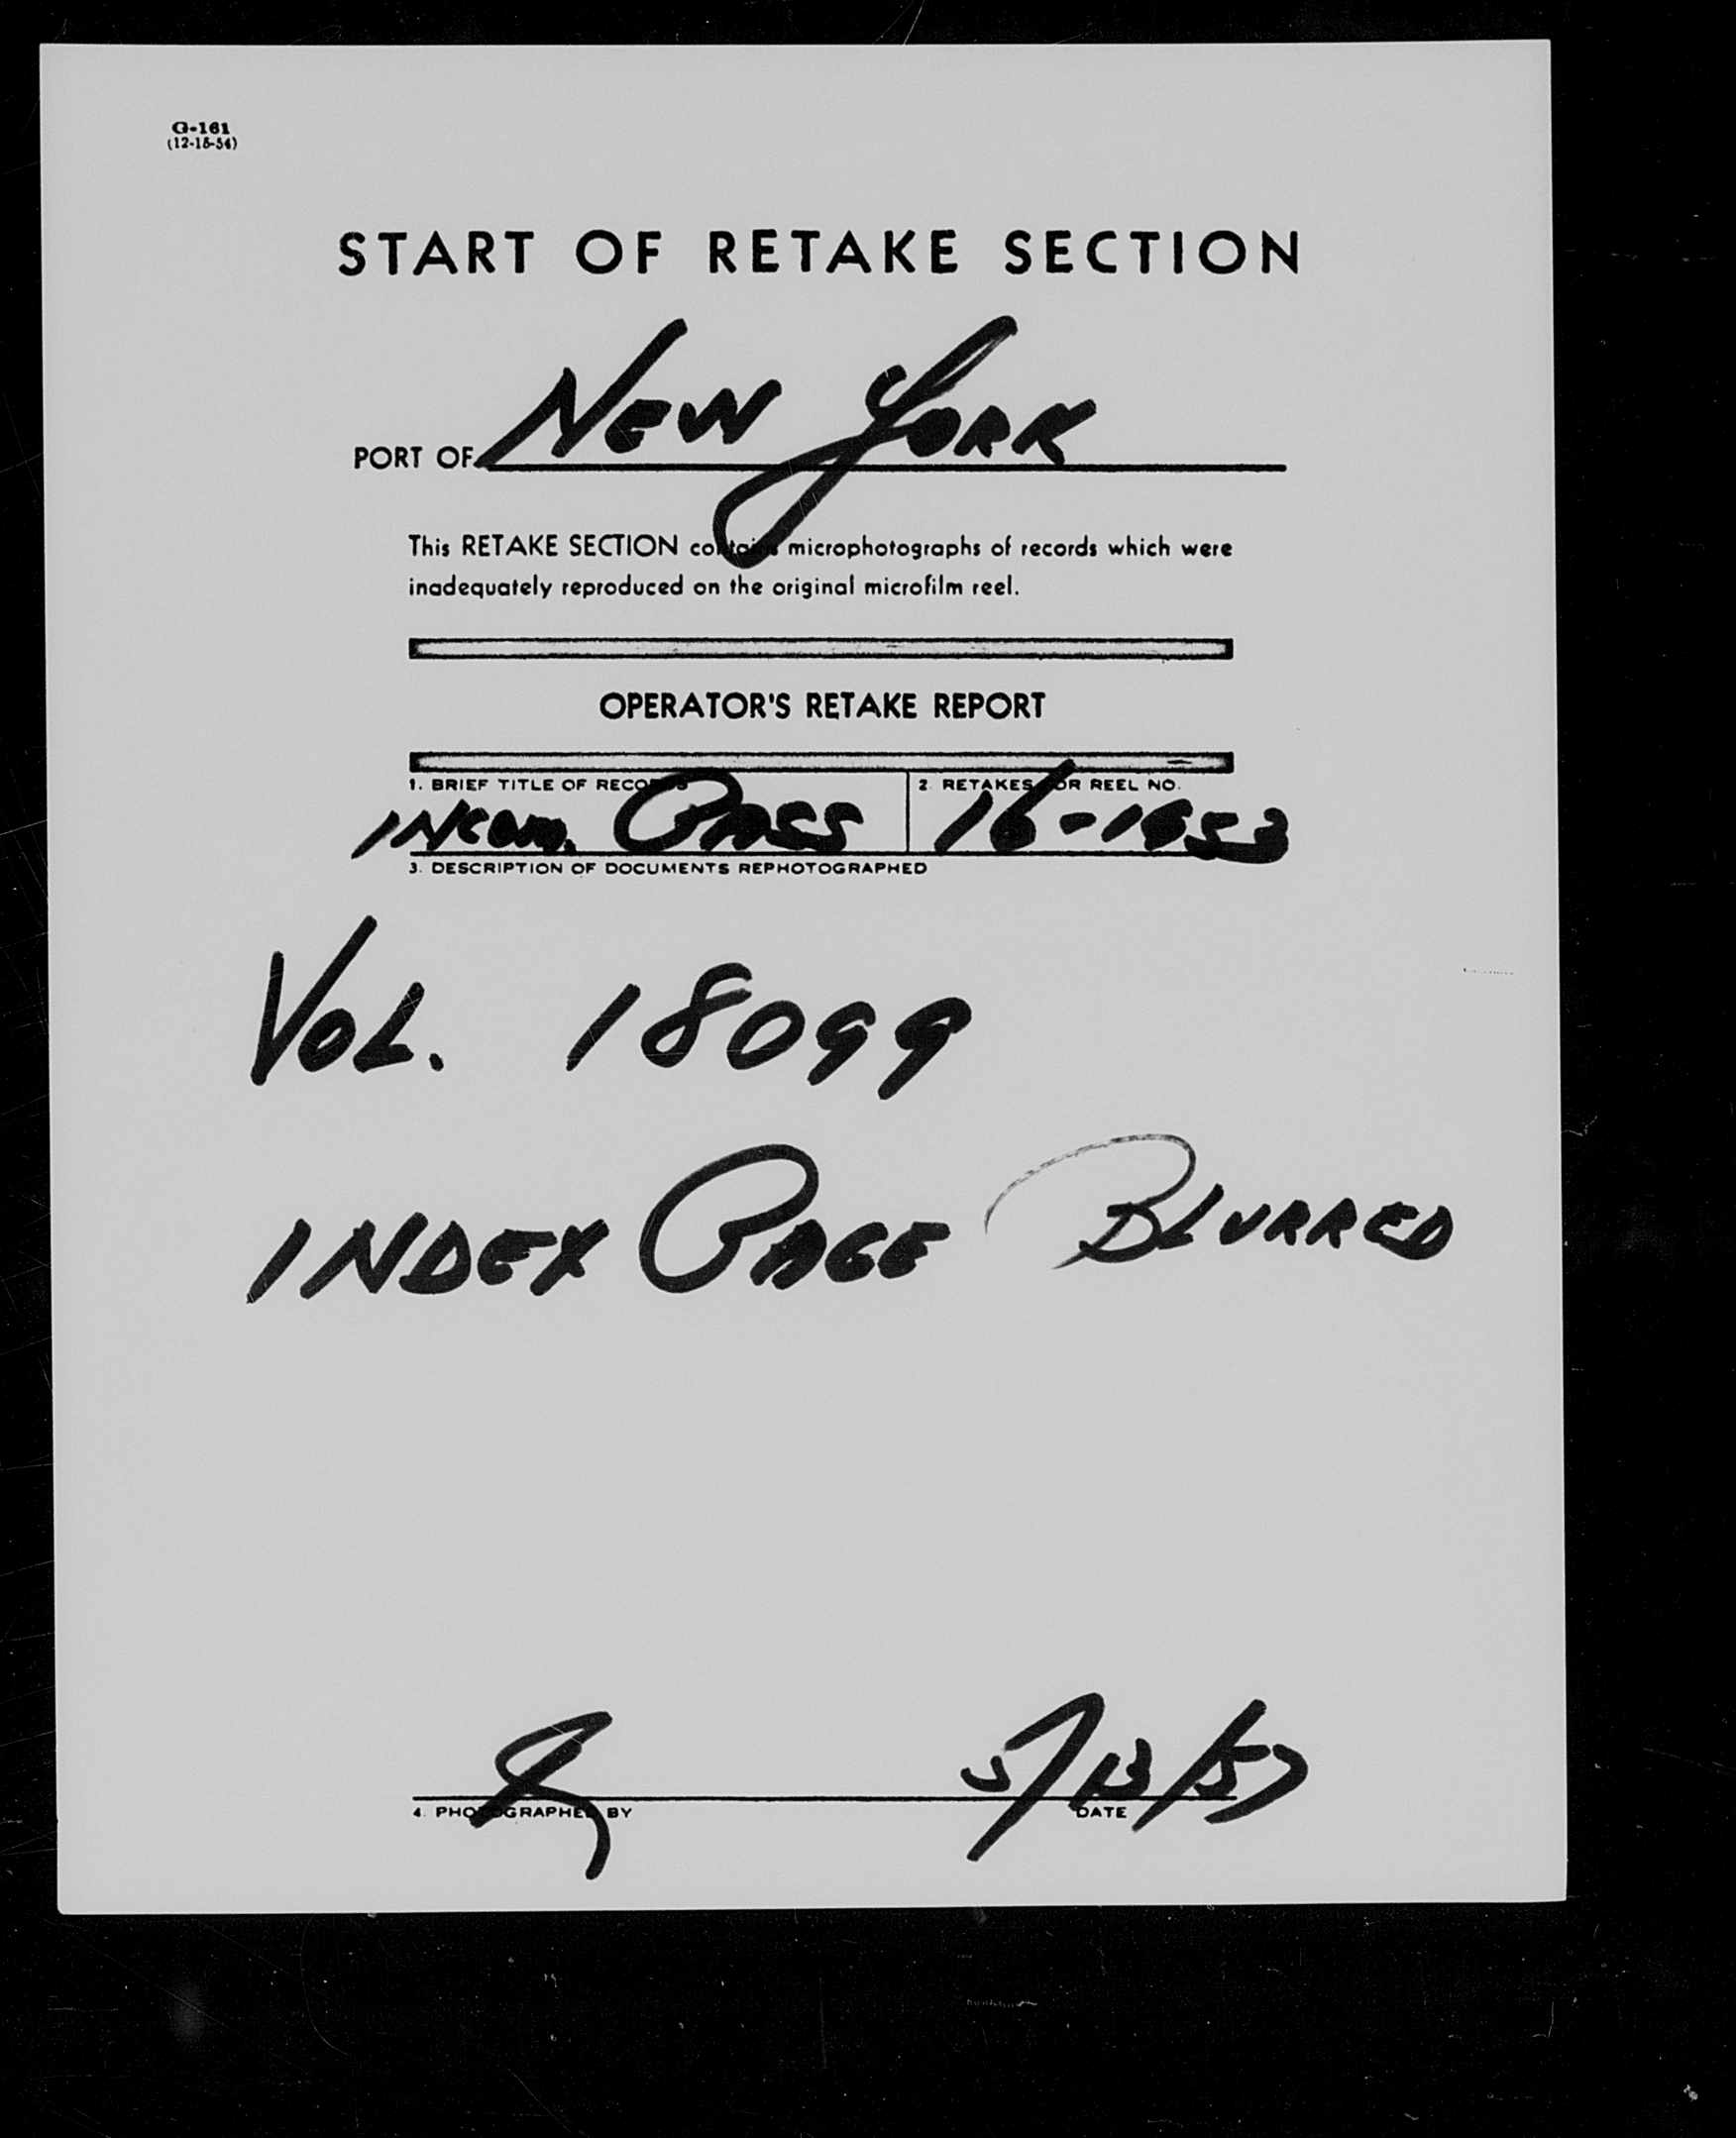 G-161
(12-15-54)
START OF RETAKE SECTION
PORT OF NEW YORK
This RETAKE SECTION contains microphotographs of records which were
inadequately reproduced on the original microfilm reel.
OPERATOR'S RETAKE REPORT
1. BRIEF TITLE OF RECORDS 2. RETAKES FOR REEL NO.
INCOM. PASS 16-1953
3. DESCRIPTION OF DOCUMENTS REPHOTOGRAPHED
VOL. 18099
INDEX PAGE BLURRED
5/13/57
4. PHOTOGRAPHED BY DATE